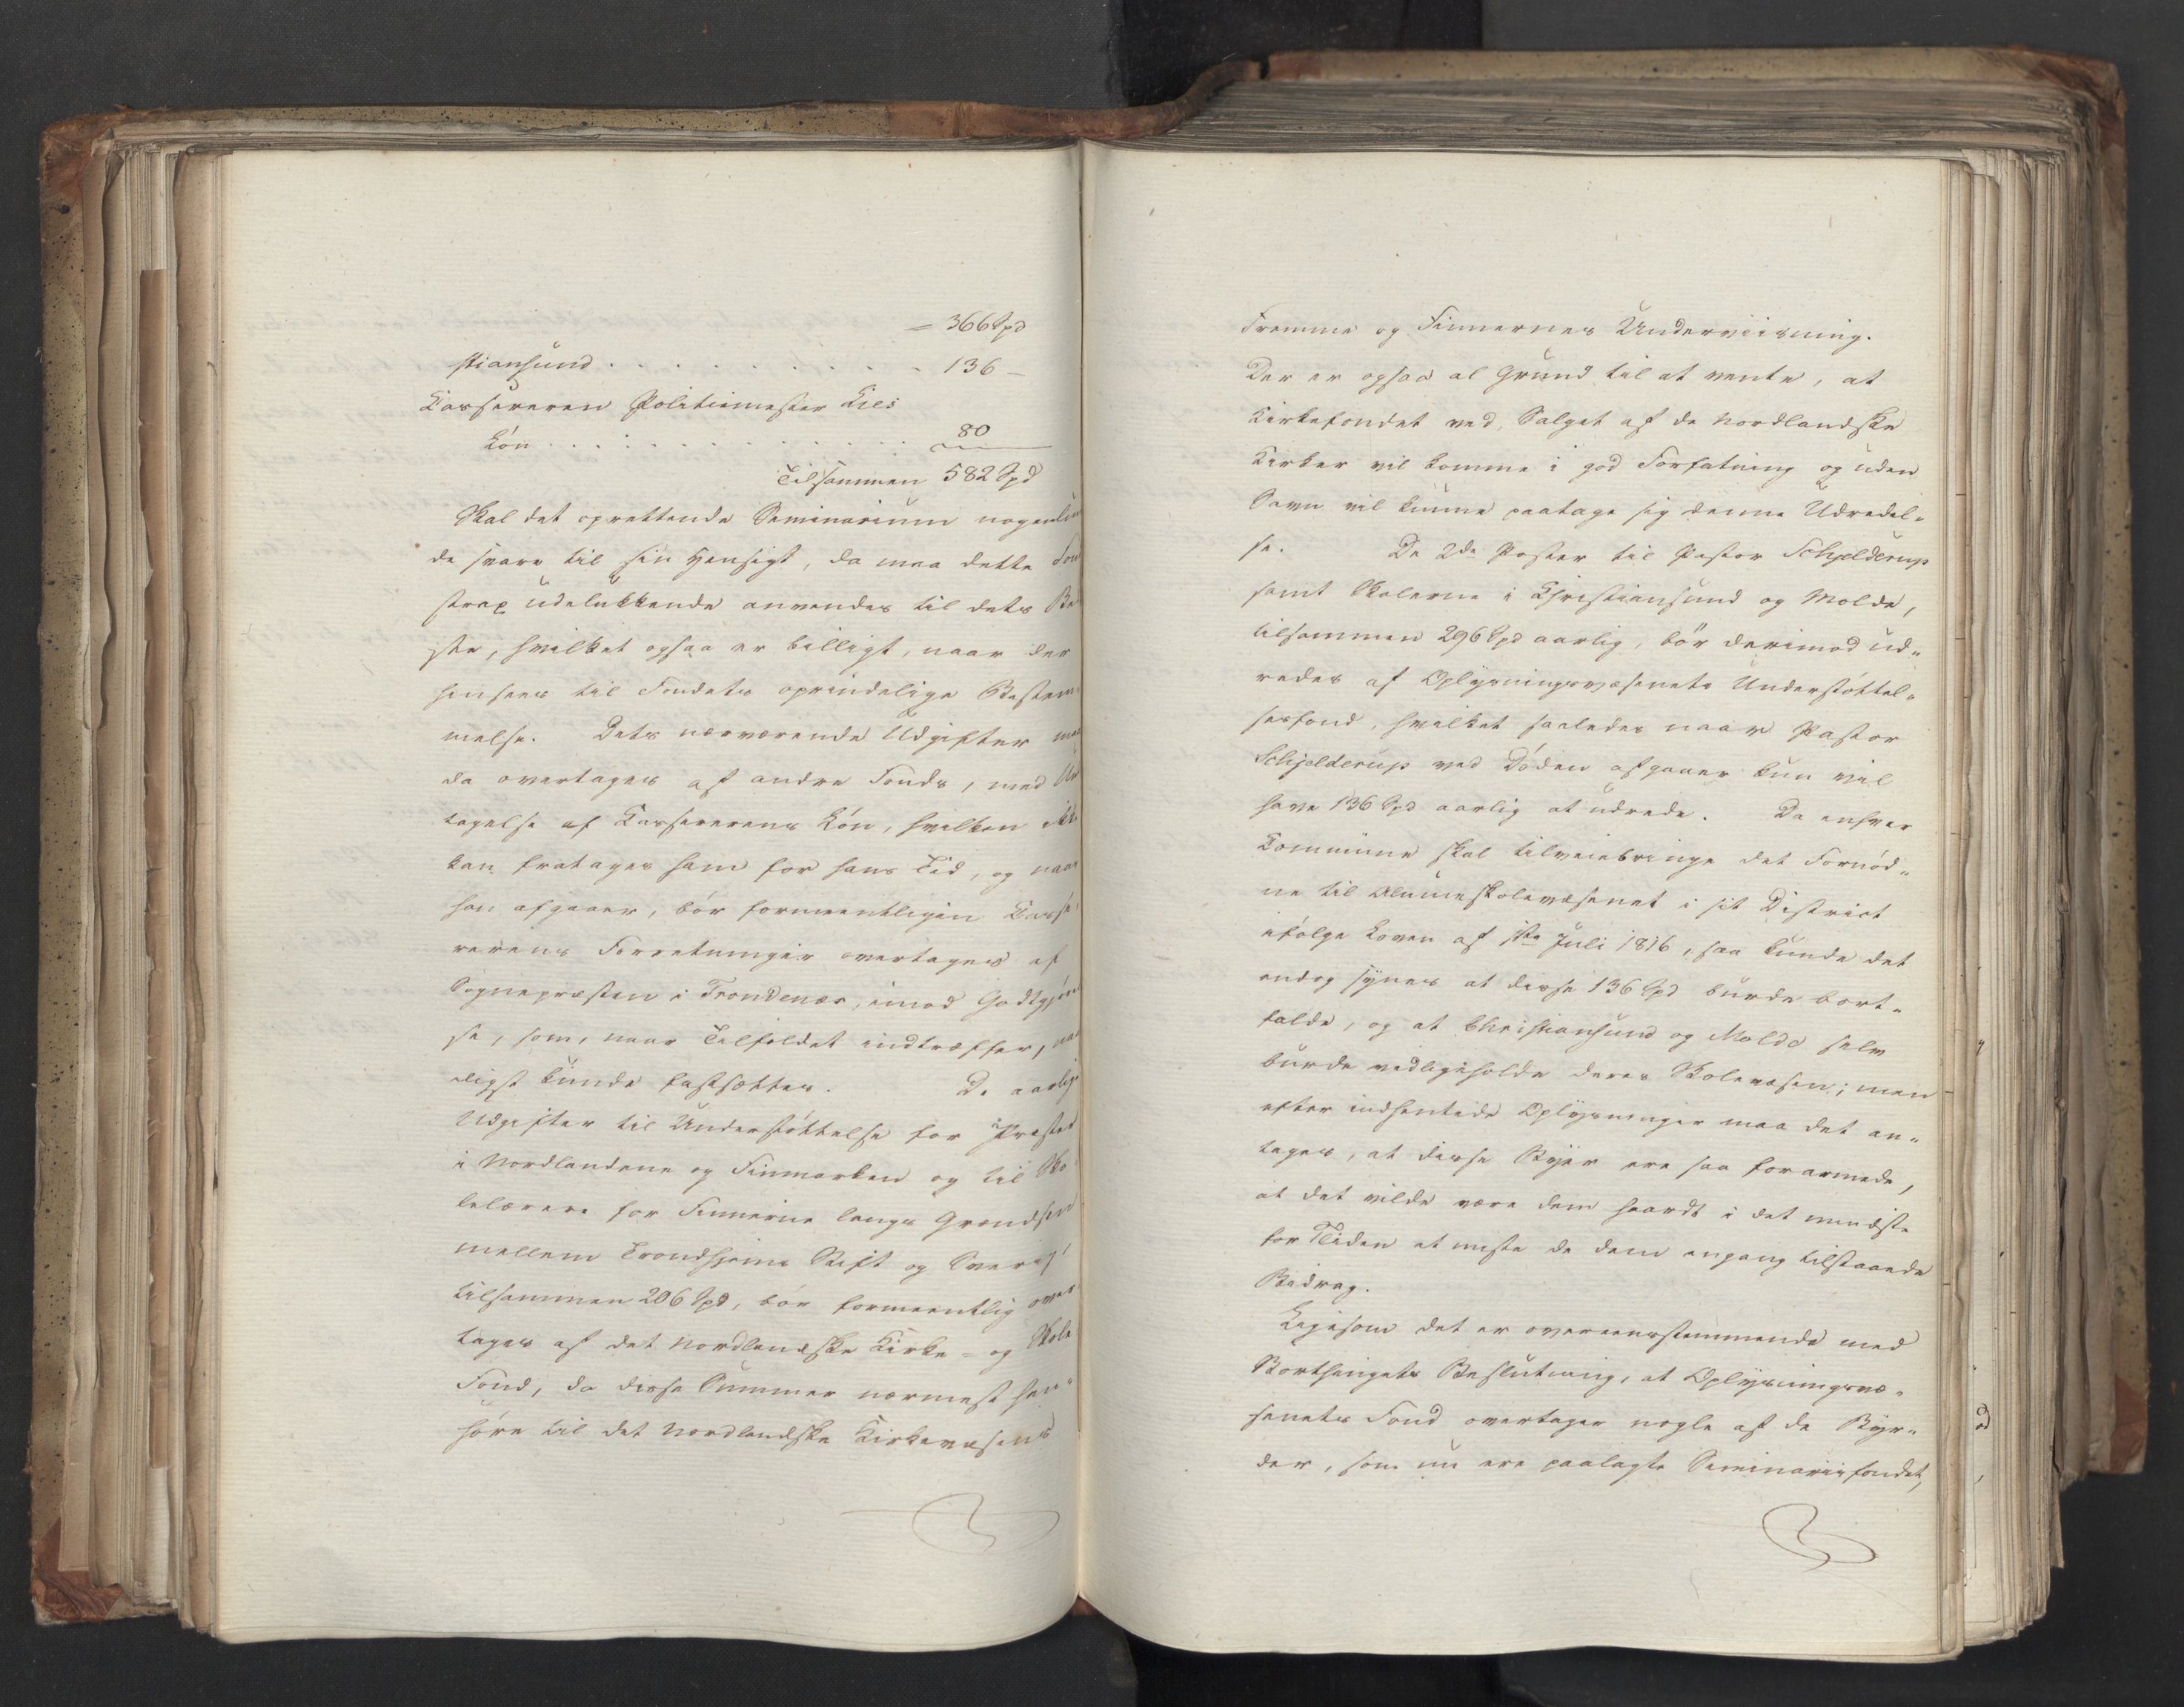 = 366 Spd
stiansund . . . . . . . . . . 136 –
Kassereren Politiemester Lies
Løn . . . . . . . . . . . . 80
Tilsammen 582 Spd
Skal det oprettende Seminarium nogenlun
de svare til sin Hensigt, da maa dette Fond
strax udelukkende anvendes til dets Be
ste, hvilket ogsaa er billigt, naar der
hensees til Fondets oprindelige Bestem
melse. Dets nærværende Udgifter maa
da overtages af andre Fonds, med Und
tagelse af Kassererens Løn, hvilken ikke
kan fratages ham for hans Tid, og naar
han afgaaer, bør formeentligen Kasse
rerens Forretninger overtages af
Sognepræsten i Trondenæs, imod Godtgjørel
se, som, naar Tilfældet indtræffer,
ligst kunde fastsættes. De aarlige
Udgifter til Understøttelse for Præster
i Nordlandene og Finmarken og til Sko
lelærere for Finnerne langs Grændsen
mellem Trondhjems Stift og Sverig
tilsammen 206 Spd, bør formeentlig over
tages af det Nordlandske Kirke- og Skole
Fond, da disse Summer nærmest hen„
høre til det Nordlandske Kirkevæsens
Fremme og Finnernes Underviisning.
Der er ogsaa al Grund til at vente, at
Kirkefondet ved Salget af de Nordlandske
Kirker vil komme i god Forfatning og uden
Savn vil kunne paatage sig denne Udredel„
se. De 2de Poster til Pastor Schjelderup
samt Skolerne i Christiansund og Molde,
tilsammen 296 Spd aarlig, bør derimod ud„
redes af Oplysningsvæsenets Understøttel„
sesfond, hvilket saaledes naar Pastor
Schjelderup ved Døden afgaaer kun vil
have 136 Spd aarlig at udrede. Da enhver
Commune skal tilveiebringe det Fornød„
ne til Almueskolevæsenet i sit District
ifølge Loven af 1ste Juli 1816, saa kunde det
endog synes at disse 136 Spd burde bort„
falde, og at Christiansund og Molde selv
burde vedligeholde deres Skolevæsen; men
efter indhentede Oplysninger maa det an„
tages, at disse Byer ere saa forarmede,
at det vilde være dem haardt i det mindste
for Tiden at miste de dem engang tilstaaede
Bidrag.
Ligesom det er overeensstemmende med
Storthingets Beslutning, at Oplysningsvæ„
senets Fond overtager nogle af de Byr„
der, som nu ere paalagte Seminariifondet,